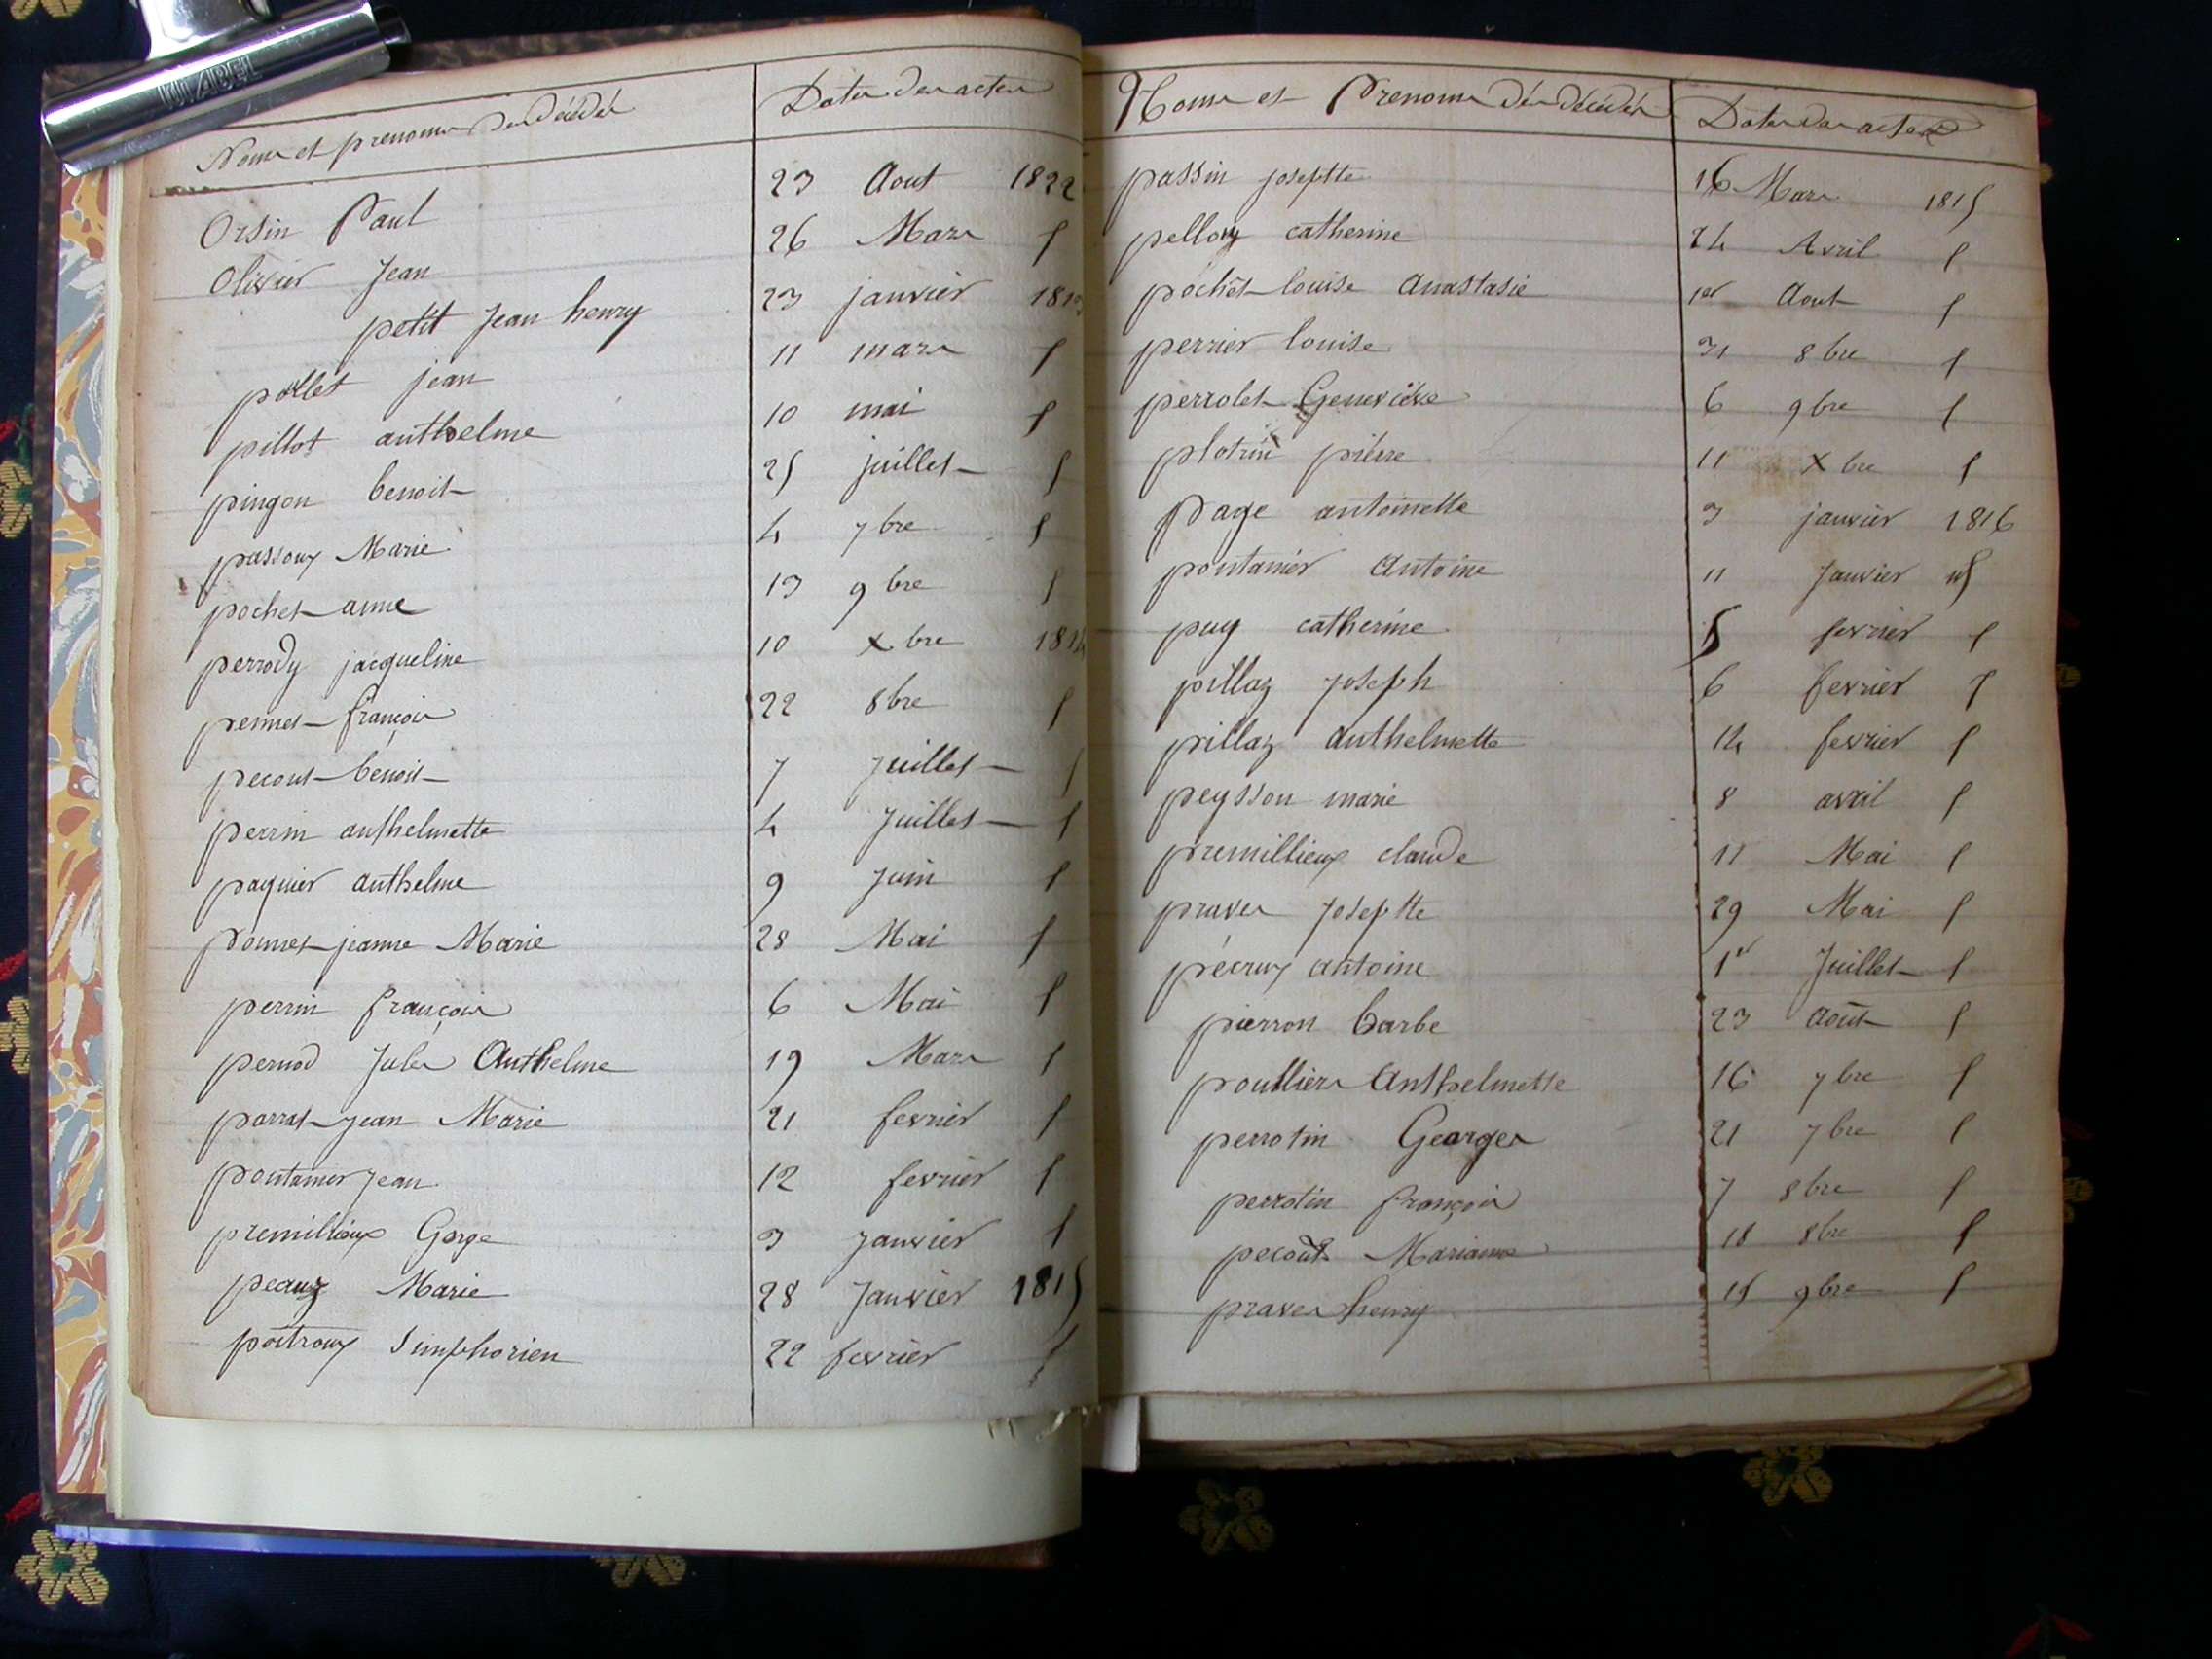 Noms et prenoms des décédés Dates des actes
Orsin Paul 23 Aout 1822
Olivier Jean 26 Mars
petit Jean henry 23 janvier
pollet jean 11 mars
pillot anthelme 10 mai
pingon benoit 25 juillet
passoux Marie 4 7bre
pochet anne 13 9bre
perrody jacqueline 10 xbre 1814
pernet françois 22 8bre
pecout benoit 7 Juillet
perrin anthelmette 4 Juillet
paquier anthelme 9 Juin
ponnet jeanne Marie 28 Mai
perrin françois 6 Mai
pernod Jules Anthelme 19 Mars
parrat jean Marie 21 fevrier
pontanier jean 12 fevrier
premillieux Gorge 3 Janvier
Marie 28 Janvier 1815
poitroux Simphorien 22 fevrier
Noms et Prenoms des décédés Dates des actes
passin josephte 16 Mars 1815
pelloux catherine 24 Avril
pochet louise Anastasie 1er Aout
perrier louise 31 8bre
perrolet Geneviève 6 9bre
plotrin pierre 11 Xbre
page antoinette 3 janvier 1816
pontanier Antoine 11 Janvier
puy catherine 5 fevrier
pillaz joseph 6 fevrier
prillaz anthelmette 14 fevrier
peysson marie 8 avril
premillieux claude 11 Mai
praves Josephte 29 Mai
antoine 1er Juillet
pierron barbe 23 Août
poulliers Anthelmette 16 7bre
perrotin Georges 21 7bre
perrotin françois 7 8bre
pecout Marianne 18 8bre
praves henry 15 9bre
KITABEL